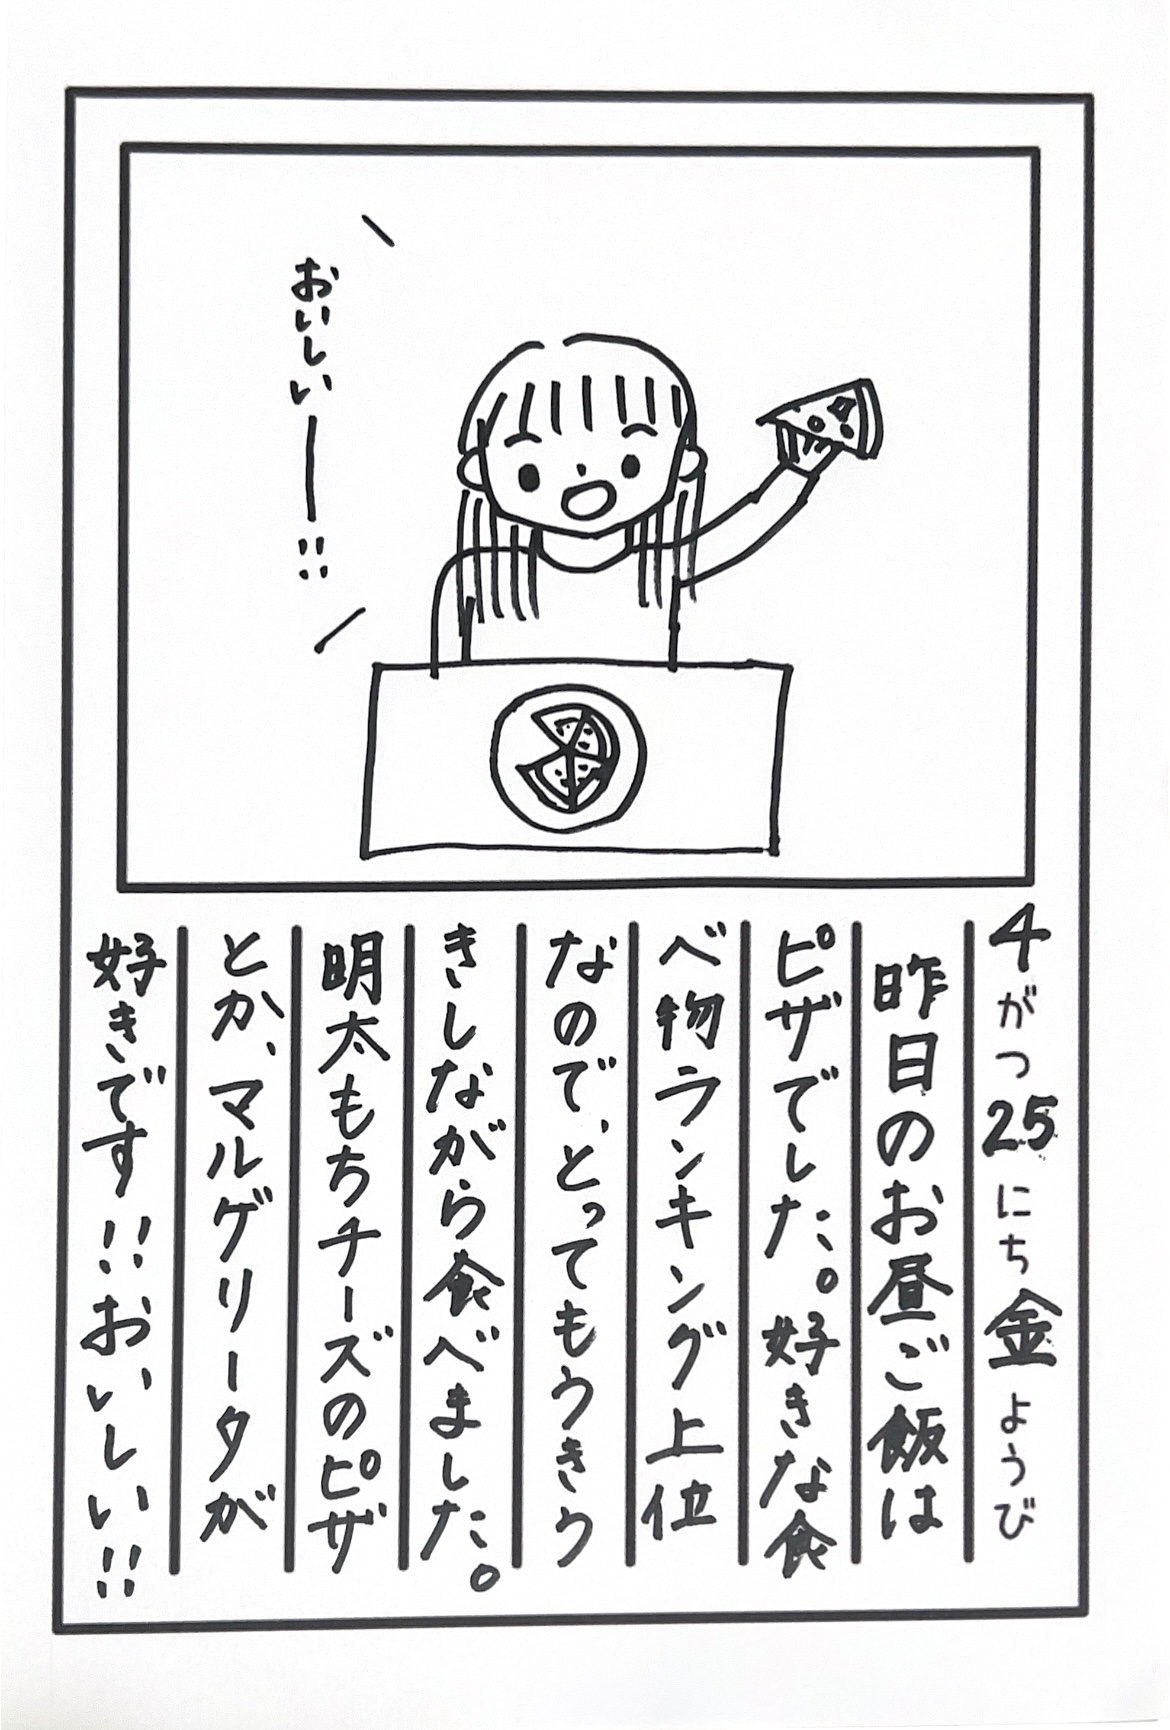 おいしいー!!
4がつ25にち金ようび
昨日のお昼ご飯は
ピザでした。好きな食
べ物ランキング上位
なので、とってもうきう
きしながら食べました。
明太もちチーズのピザ
とか、マルゲリータが
好きです!!おいしい!!